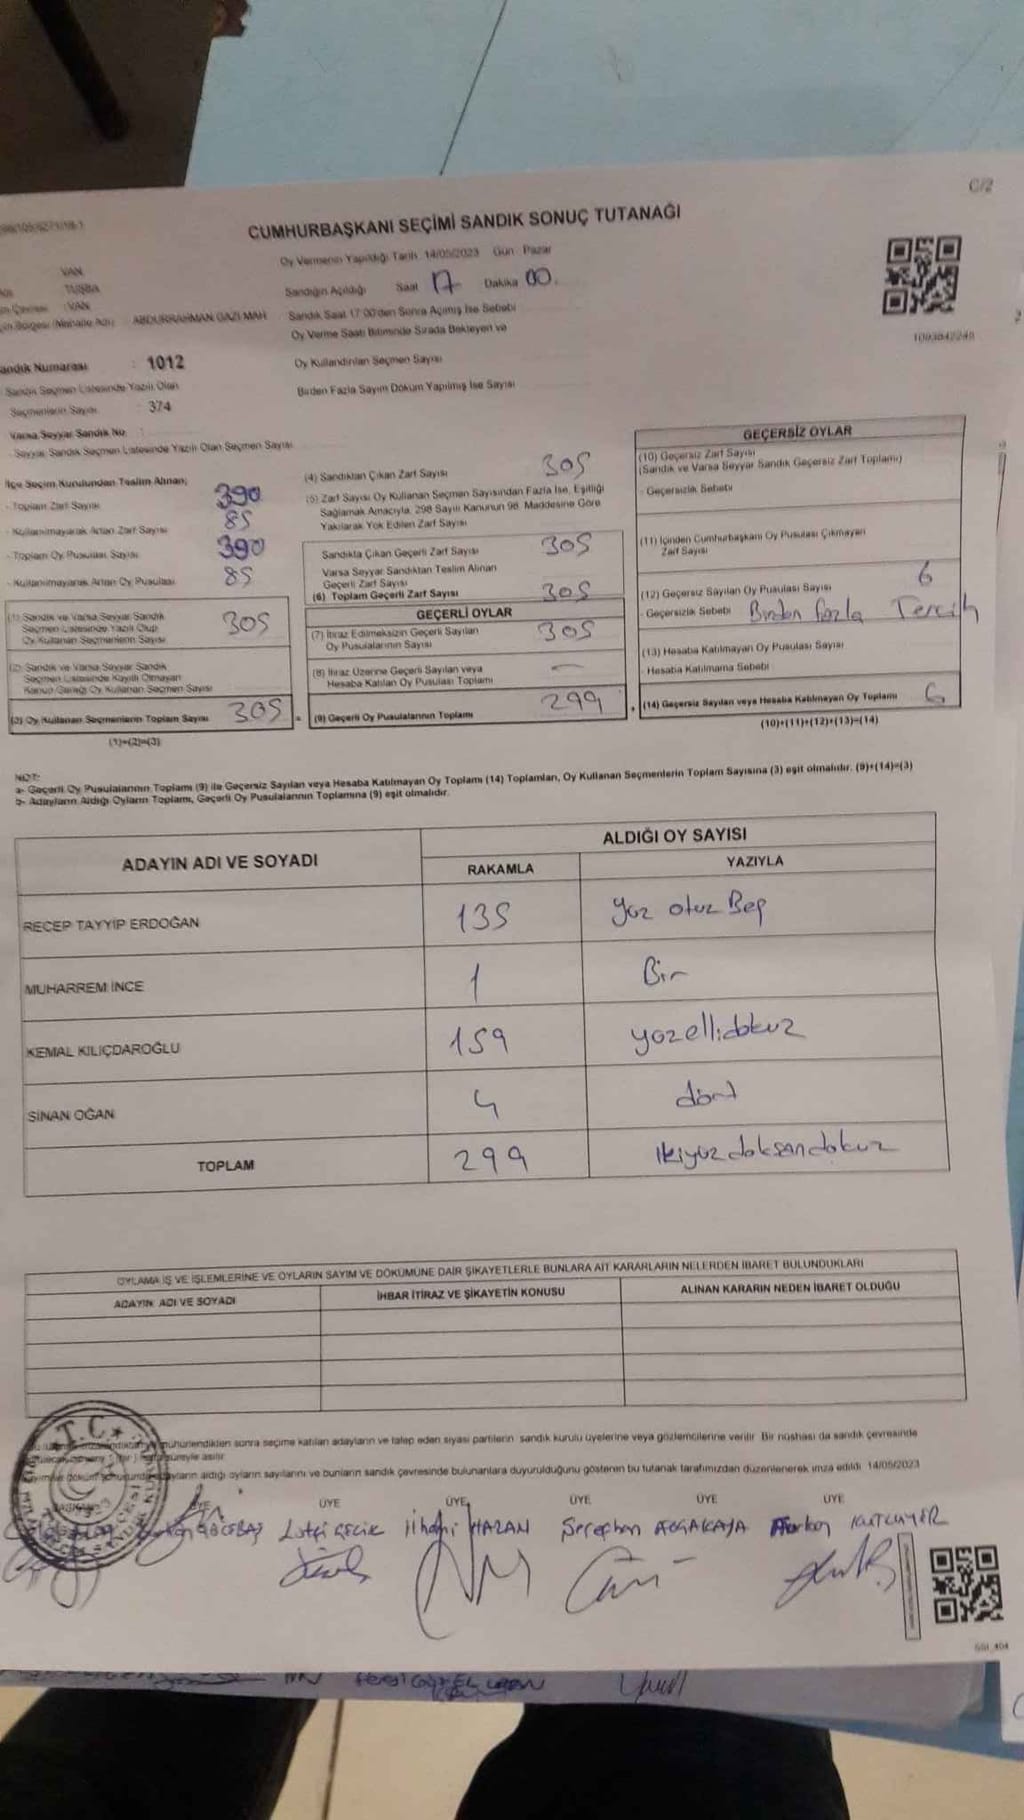 C/2
CUMHURBAŞKANI SEÇİMİ SANDIK SONUÇ TUTANAĞI
VAN
TUŞBA
VAN
ABDURRAHMAN GAZİ MAH
Oy Vermenin Yapıldığı Tarih 14/05/2023 Gün Pazar
Sandığın Açıldığı Saat 17 Dakika 00
Sandık Saat 17:00'den Sonra Açımış İse Sebebi
Oy Verme Saati Bitiminde Sırada Bekleyen ve
Oy Kullandırılan Seçmen Sayısı
Birden Fazla Sayım Döküm Yapılmış İse Sayısı
1093842248
Sandık Numarası : 1012
Sandık Seçmen Listesinde Yazılı Olan
Seçmenlerin Sayısı : 374
Varsa Seyyar Sandık No :
- Seyyar Sandık Seçmen Listesinde Yazılı Olan Seçmen Sayısı
İlçe Seçim Kurulundan Teslim Alınan;
- Toplam Zarf Sayısı 390
- Kullanılmayarak Artan Zarf Sayısı 85
- Toplam Oy Pusulası Sayısı 390
- Kullanılmayarak Artan Oy Pusulası 85
(1) Sandık ve Varsa Seyyar Sandık
Seçmen Listesinde Yazılı Olup
Oy Kullanan Seçmenlerin Sayısı 305
(2) Sandık ve Varsa Seyyar Sandık
Seçmen Listesinde Kayıtlı Olmayan
Kanun Gereği Oy Kullanan Seçmen Sayısı
(3) Oy Kullanan Seçmenlerin Toplam Sayısı 305
(1)+(2)=(3)
(4) Sandıktan Çıkan Zarf Sayısı 305
(5) Zarf Sayısı Oy Kullanan Seçmen Sayısından Fazla İse, Eşitliği
Sağlamak Amacıyla, 298 Sayılı Kanunun 98. Maddesine Göre
Yakılarak Yok Edilen Zarf Sayısı
Sandıkta Çıkan Geçerli Zarf Sayısı 305
Varsa Seyyar Sandıktan Teslim Alınan
Geçerli Zarf Sayısı
(6) Toplam Geçerli Zarf Sayısı 305
GEÇERLİ OYLAR
(7) İtiraz Edilmeksizin Geçerli Sayılan
Oy Pusulalarının Sayısı 305
(8) İtiraz Üzerine Geçerli Sayılan veya
Hesaba Katılan Oy Pusulası Toplamı —
(9) Geçerli Oy Pusulalarının Toplamı 299
GEÇERSİZ OYLAR
(10) Geçersiz Zarf Sayısı
(Sandık ve Varsa Seyyar Sandık Geçersiz Zarf Toplamı)
- Geçersizlik Sebebi
(11) İçinden Cumhurbaşkanı Oy Pusulası Çıkmayan
Zarf Sayısı
(12) Geçersiz Sayılan Oy Pusulası Sayısı 6
- Geçersizlik Sebebi Birden fazla Tercih
(13) Hesaba Katılmayan Oy Pusulası Sayısı
- Hesaba Katılmama Sebebi
(14) Geçersiz Sayılan veya Hesaba Katılmayan Oy Toplamı 6
(10)+(11)+(12)+(13)=(14)
NOT:
a- Geçerli Oy Pusulalarının Toplamı (9) ile Geçersiz Sayılan veya Hesaba Katılmayan Oy Toplamı (14) Toplamları, Oy Kullanan Seçmenlerin Toplam Sayısına (3) eşit olmalıdır. (9)+(14)=(3)
b- Adayların Aldığı Oyların Toplamı, Geçerli Oy Pusulalarının Toplamına (9) eşit olmalıdır.
ADAYIN ADI VE SOYADI
ALDIĞI OY SAYISI
RAKAMLA YAZIYLA
RECEP TAYYİP ERDOĞAN 135 yüz otuz Beş
MUHARREM İNCE 1 Bir
KEMAL KILIÇDAROĞLU 159 yüzellidokuz
SİNAN OĞAN 4 dört
TOPLAM 299 ikiyüzdoksandokuz
OYLAMA İŞ VE İŞLEMLERİNE VE OYLARIN SAYIM VE DÖKÜMÜNE DAİR ŞİKAYETLERLE BUNLARA AİT KARARLARIN NELERDEN İBARET BULUNDUKLARI
ADAYIN ADI VE SOYADI İHBAR İTİRAZ VE ŞİKAYETİN KONUSU ALINAN KARARIN NEDEN İBARET OLDUĞU
mühürlendikten sonra seçime katılan adayların ve talep eden siyasi partilerin sandık kurulu üyelerine veya gözlemcilerine verilir. Bir nüshası da sandık çevresinde
süreyle asılır.
adayların aldığı oyların sayılarını ve bunların sandık çevresinde bulunanlara duyurulduğunu gösteren bu tutanak tarafımızdan düzenlenerek imza edildi. 14/05/2023
T.C.
ÜYE ÜYE ÜYE ÜYE ÜYE ÜYE
Lütfi GECİK İlhami HAZAN